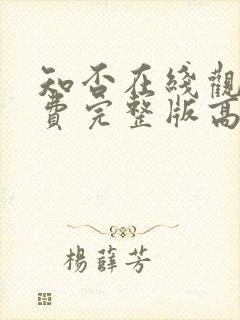 知否在綫觀
費完整版高
楊薛芳